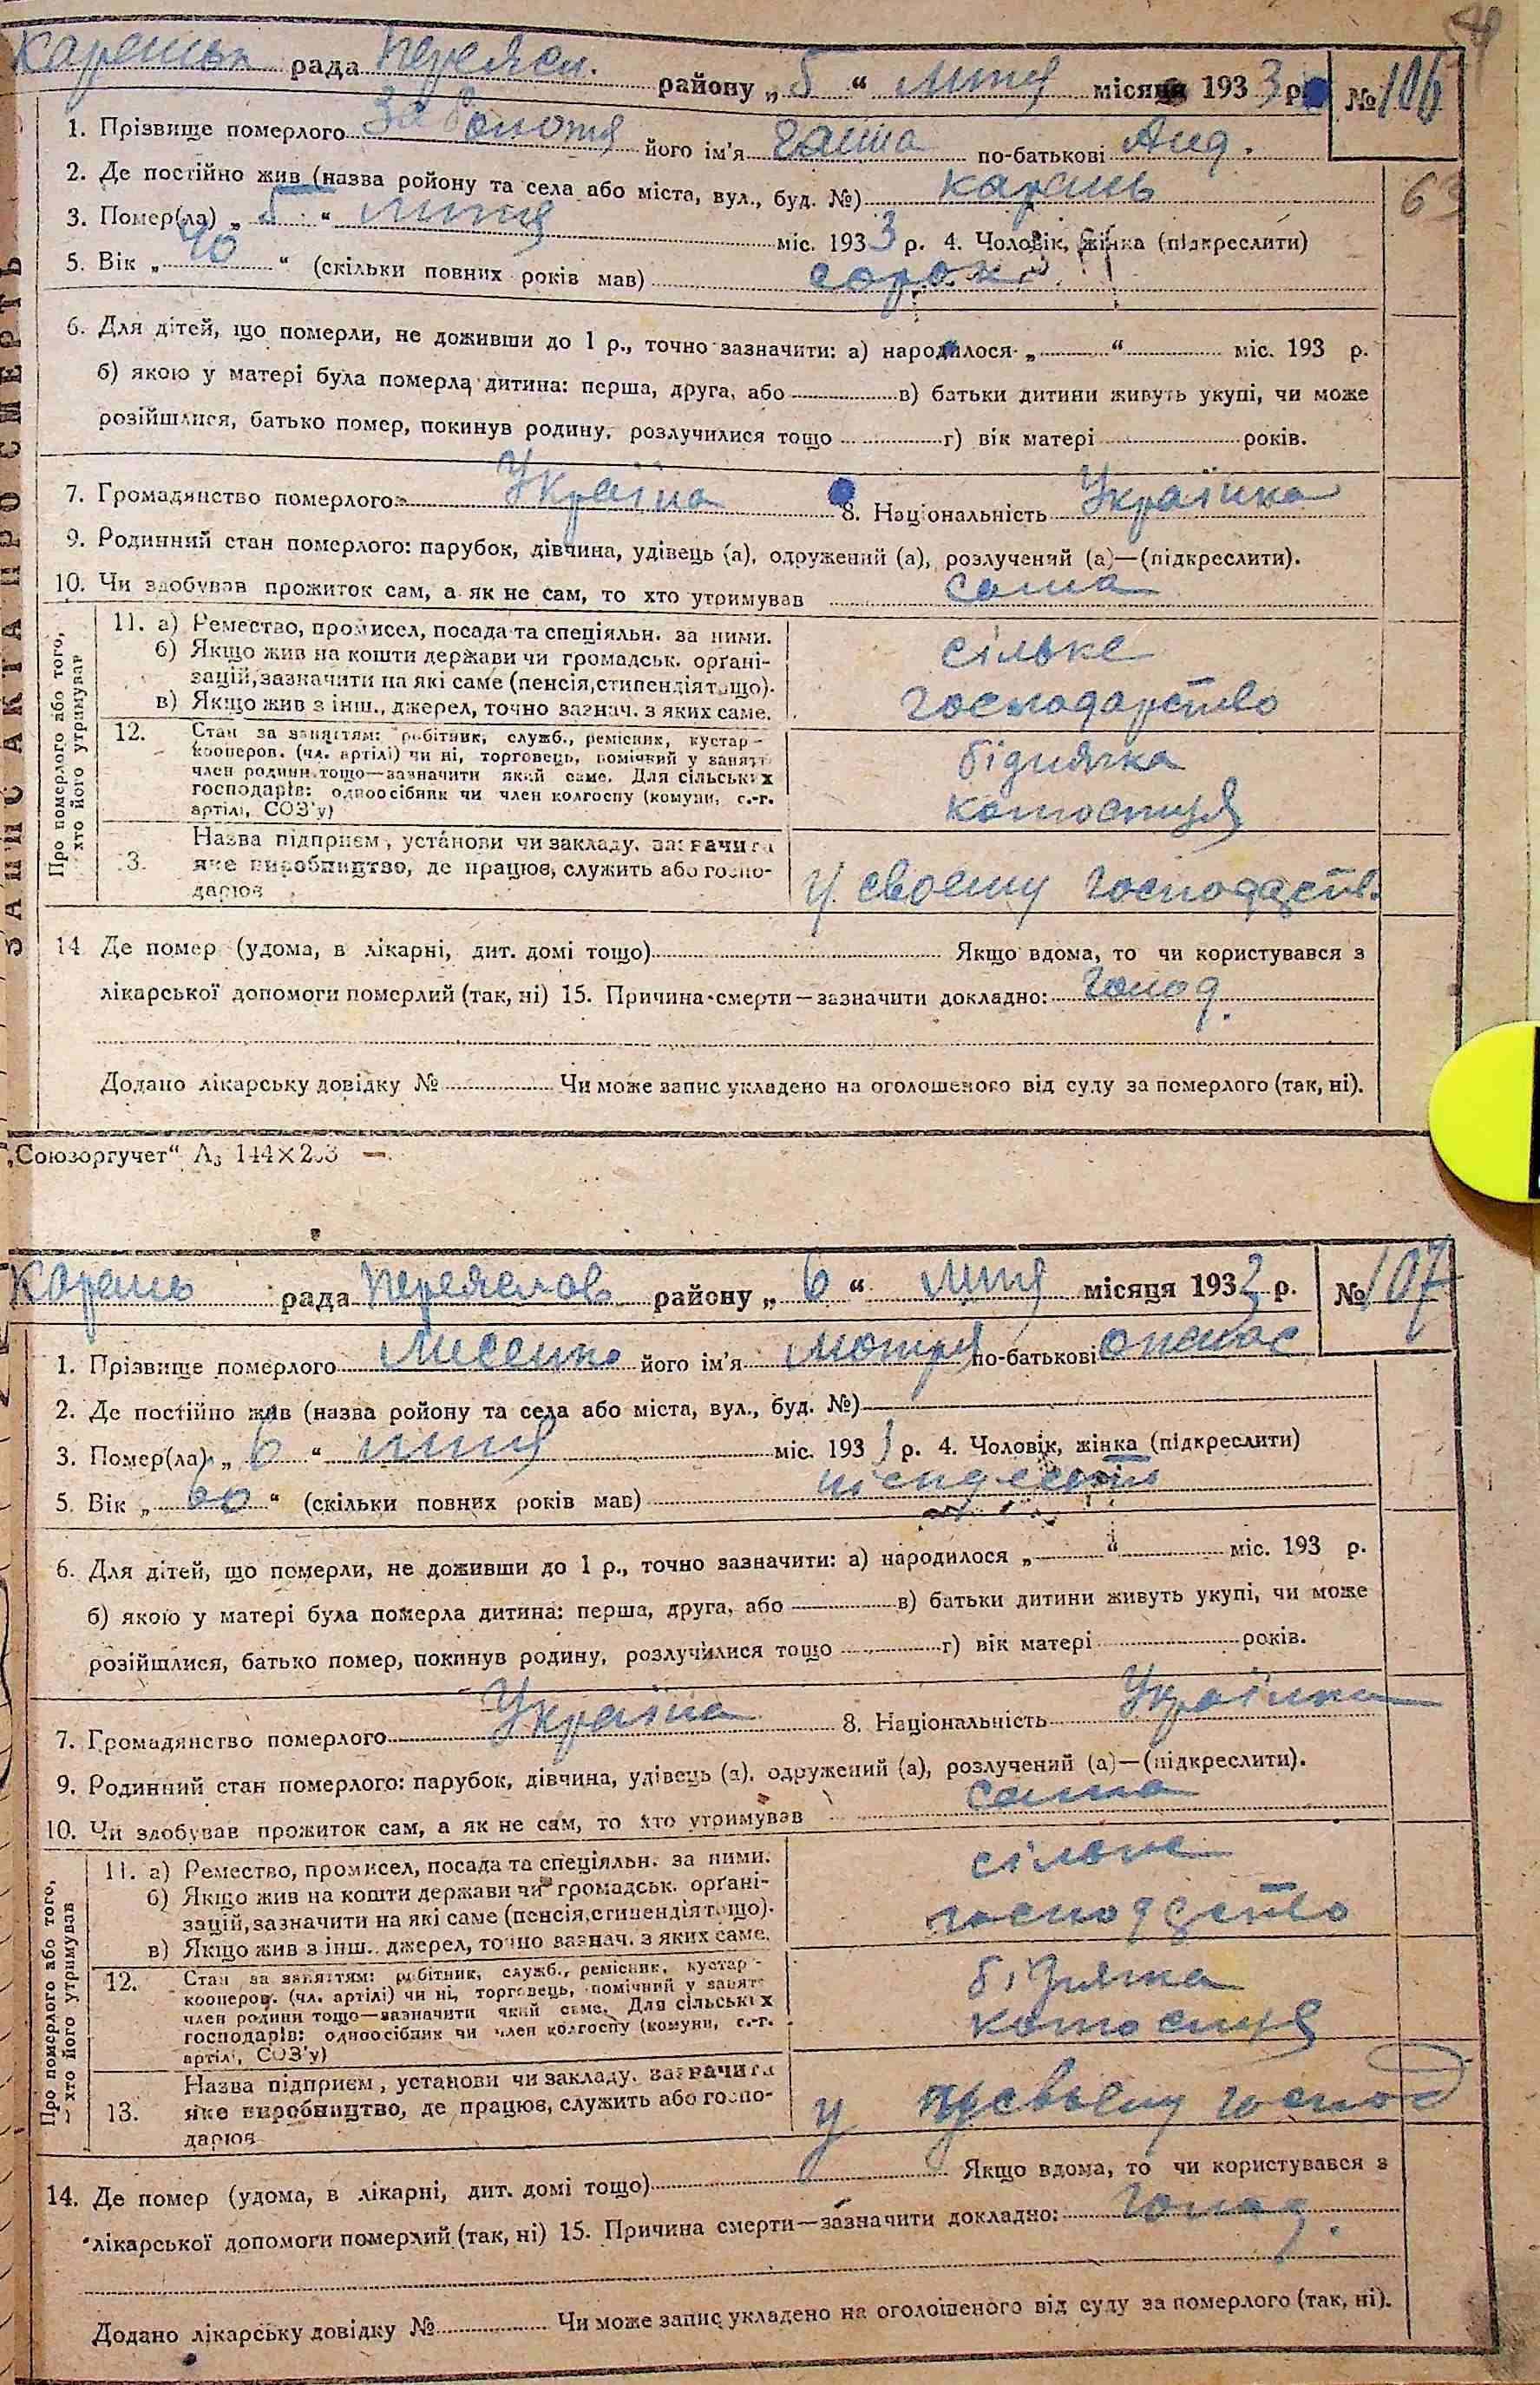 рада Переясл. району „ 5 “ липня місяця 1933 р. № 106
1. Прізвище померлого його ім'я Ганна по-батькові Анд.
2. Де постійно жив (назва ройону та села або міста, вул., буд. №) Карань
63
3. Помер(ла) „ 5 “ липня міс. 1933 р. 4. Чоловік, жінка (підкреслити)
5. Вік „ 40 “ (скільки повних років мав) сорок
6. Для дітей, що померли, не доживши до 1 р., точно зазначити: а) народилося „ “ міс. 193 р.
б) якою у матері була померла дитина: перша, друга, або в) батьки дитини живуть укупі, чи може
розійшлися, батько помер, покинув родину, розлучилися тощо г) вік матері років.
7. Громадянство померлого Україна 8. Національність Українка
9. Родинний стан померлого: парубок, дівчина, удівець (а), одружений (а), розлучений (а)—(підкреслити).
10. Чи здобував прожиток сам, а як не сам, то хто утримував сама
ЗАПИС АКТА ПРО СМЕРТЬ
Про померлого або того,
хто його утримував
11. а) Ремество, промисел, посада та спеціяльн. за ними.
б) Якщо жив на кошти держави чи громадськ. орґані-
зацій, зазначити на які саме (пенсія, стипендія тощо).
в) Якщо жив з інш., джерел, точно зазнач. з яких саме.
сільке
господарство
12. Стан за заняттям: робітник, служб., ремісник, кустар-
кооперов. (чл. артілі) чи ні, торговець, помічний у занятт
член родини тощо—зазначити який саме. Для сільських
господарів: одноосібник чи член колгоспу (комуни, с.-г.
артілі, СОЗ'у)
біднячка
13. Назва підприєм, установи чи закладу, зазначити
яке виробництво, де працює, служить або госпо-
дарює
у своєму господарств.
14 Де помер (удома, в лікарні, дит. домі тощо) Якщо вдома, то чи користувався з
лікарської допомоги померлий (так, ні) 15. Причина смерти—зазначити докладно: Голод.
Додано лікарську довідку № Чи може запис укладено на оголошеного від суду за померлого (так, ні).
„Союзоргучет“ А₃ 144×203 —
Карань рада Переяслов району „ 6 “ липня місяця 1933 р. № 107
1. Прізвище померлого Лисенко його ім'я Мотря по-батькові Опанас
2. Де постійно жив (назва ройону та села або міста, вул., буд. №)
3. Помер(ла) „ 6 “ липня міс. 193 р. 4. Чоловік, жінка (підкреслити)
5. Вік „ 60 “ (скільки повних років мав)
6. Для дітей, що померли, не доживши до 1 р., точно зазначити: а) народилося „ “ міс. 193 р.
б) якою у матері була померла дитина: перша, друга, або в) батьки дитини живуть укупі, чи може
розійшлися, батько помер, покинув родину, розлучилися тощо г) вік матері років.
7. Громадянство померлого Україна 8. Національність Українка
9. Родинний стан померлого: парубок, дівчина, удівець (а), одружений (а), розлучений (а)—(підкреслити).
10. Чи здобував прожиток сам, а як не сам, то хто утримував сама
Про померлого або того,
хто його утримував
11. а) Ремество, промисел, посада та спеціяльн. за ними.
б) Якщо жив на кошти держави чи громадськ. орґані-
зацій, зазначити на які саме (пенсія, стипендія тощо).
в) Якщо жив з інш., джерел, точно зазнач. з яких саме.
сільке
12. Стан за заняттям: робітник, служб., ремісник, кустар-
кооперов. (чл. артілі) чи ні, торговець, помічний у занятт
член родини тощо—зазначити який саме. Для сільських
господарів: одноосібник чи член колгоспу (комуни, с.-г.
артілі, СОЗ'у)
біднячка
13. Назва підприєм, установи чи закладу, зазначити
яке виробництво, де працює, служить або госпо-
дарює
у своєму господ
14. Де помер (удома, в лікарні, дит. домі тощо) Якщо вдома, то чи користувався з
лікарської допомоги померлий (так, ні) 15. Причина смерти—зазначити докладно: Голод.
Додано лікарську довідку № Чи може запис укладено на оголошеного від суду за померлого (так, ні).